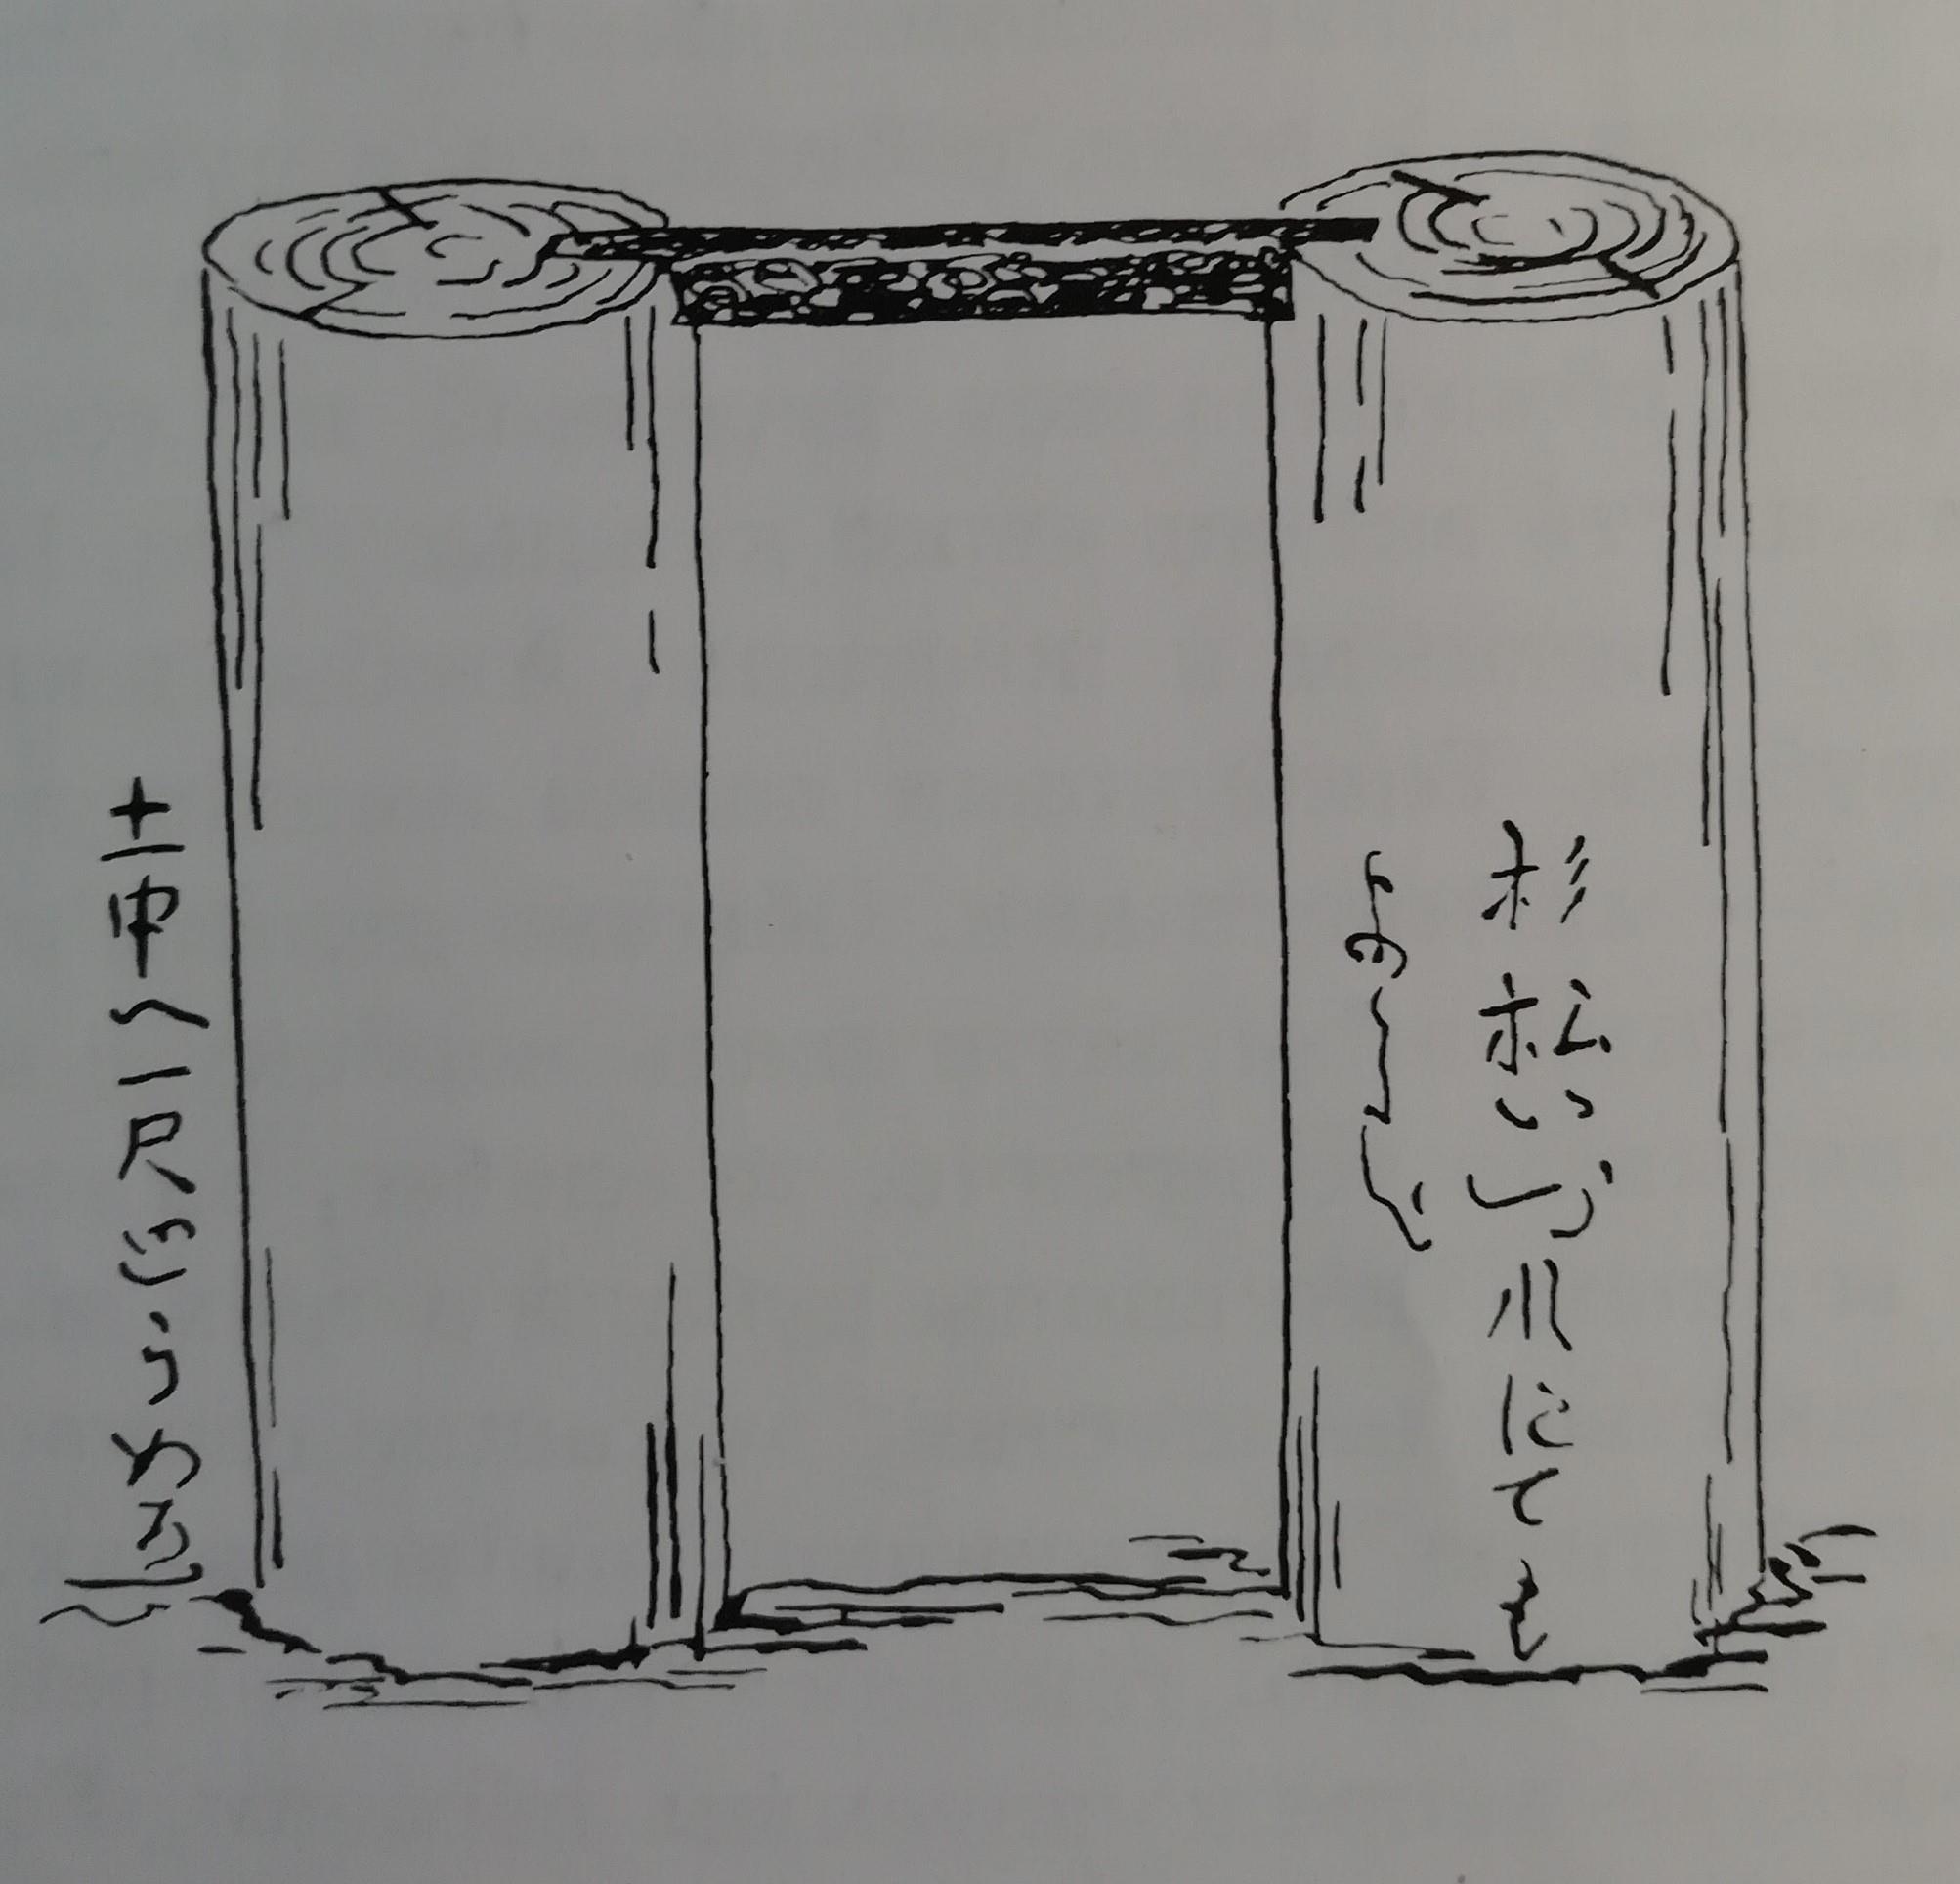 杉松いづれにても
よろし
土中へ一尺ほどうめる